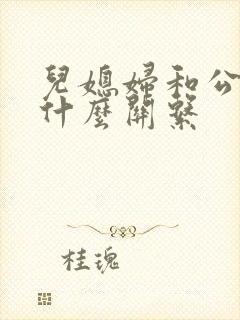 兒媳婦和公
什麼關繫
桂瑰